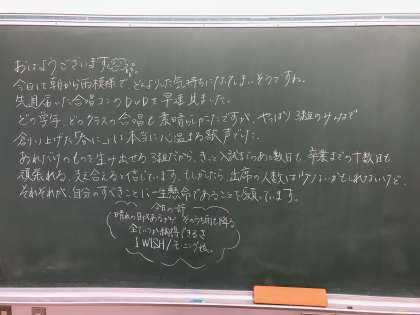 おはようございます
今日は朝から雨模様で、どんよりした気持ちになってしまいそうですね。
先日届いた合唱コンのDVDを早速見ました。
どの学年、どのクラスの合唱も素晴らしかったですが、やっぱり3組のみんなで
創り上げた「春に」は本当に心温まる歌声でした。
あれだけのものを生み出せる3組だから、きっと入試までのあと数日も、卒業までの十数日も
頑張れる、支え合えると信じています。もしかしたら、出席の人数は少ないかもしれないけど、
それぞれが、自分のすべきことに一生懸命であることを願っています。
今日の一節
晴れの日があるから そのうち雨も降る
全ていつか納得できるさ
I WISH/モーニング娘。